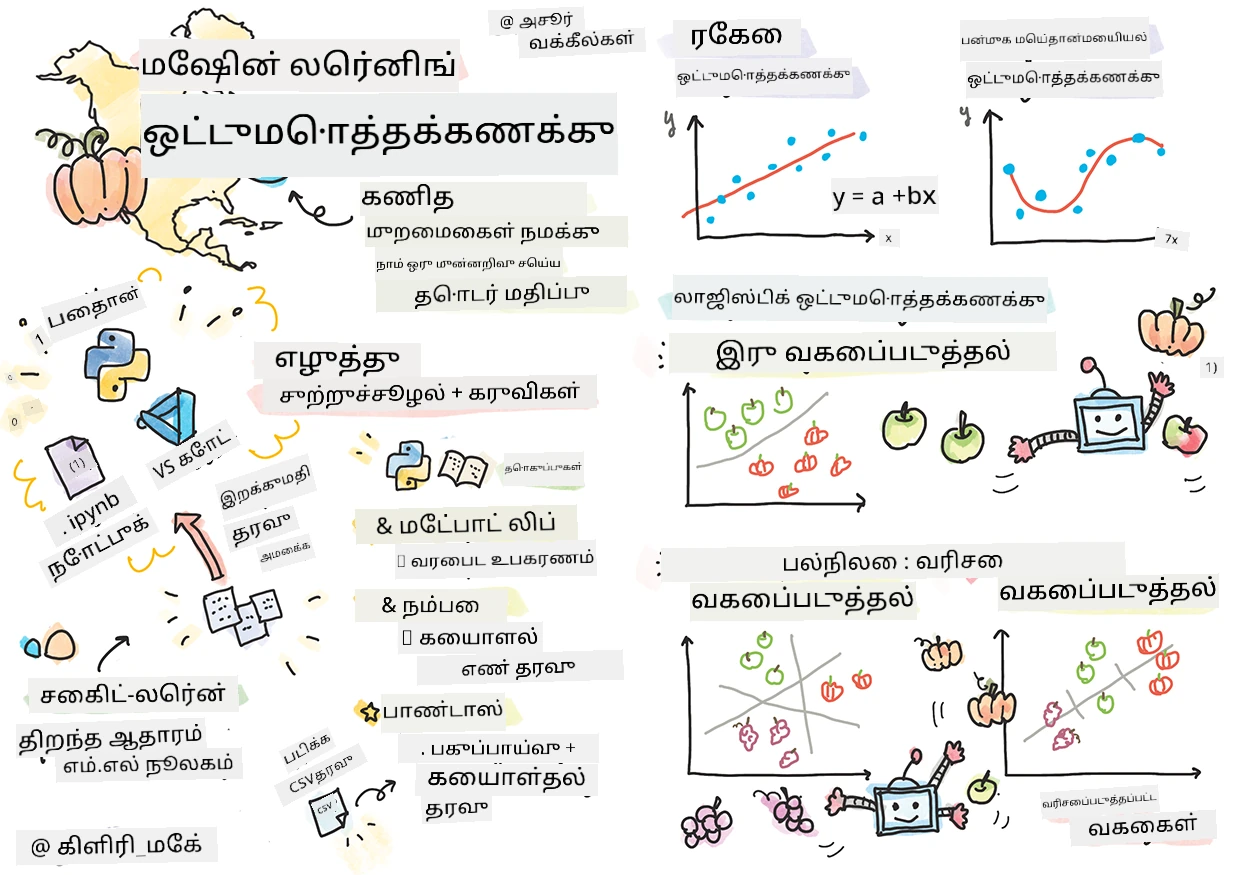 @ அசூர்
வக்கீல்கள்
மஷேின் லர்னிங்
ஒட்டுமொத்தக்கணக்கு
கணித
முறமைகைள் நமக்கு
நாம் ஒரு முன்னறிவு சயெ்ய
தொடர் மதிப்பு
1 பதைான்
எழுத்து
சுற்றுச்சூழல் + கருவிகள்
VS கோட்
(1)
. ipynb
நோட்புக்
இறக்குமதி
தரவு
அமகை்க
தொகுப்புகள்
& மட்பேோட் லிப்
வரபைட உபகரணம்
& நம்பை
கயைாளல்
எண் தரவு
சகைிட்-லர்ன்
திறந்த ஆதாரம்
எம்.எல் நூலகம்
பாண்டாஸ்
. பகுப்பாய்வு +
கயைாள்தல்
தரவு
படிக்க
CSVதரவு
CSV
@ கிளிரி_மகே்
ரகேை
ஒட்டுமொத்தக்கணக்கு
y
y = a +bx
x
ஒட்டுமொத்தக்கணக்கு
y
7x
லாஜிஸ்டிக் ஒட்டுமொத்தக்கணக்கு
இரு வகபை்படுத்தல்
1)
பல்நிலை : வரிசை
வகபை்படுத்தல்
வகபை்படுத்தல்
வரிசபை்படுத்தப்பட்ட
வககைள்